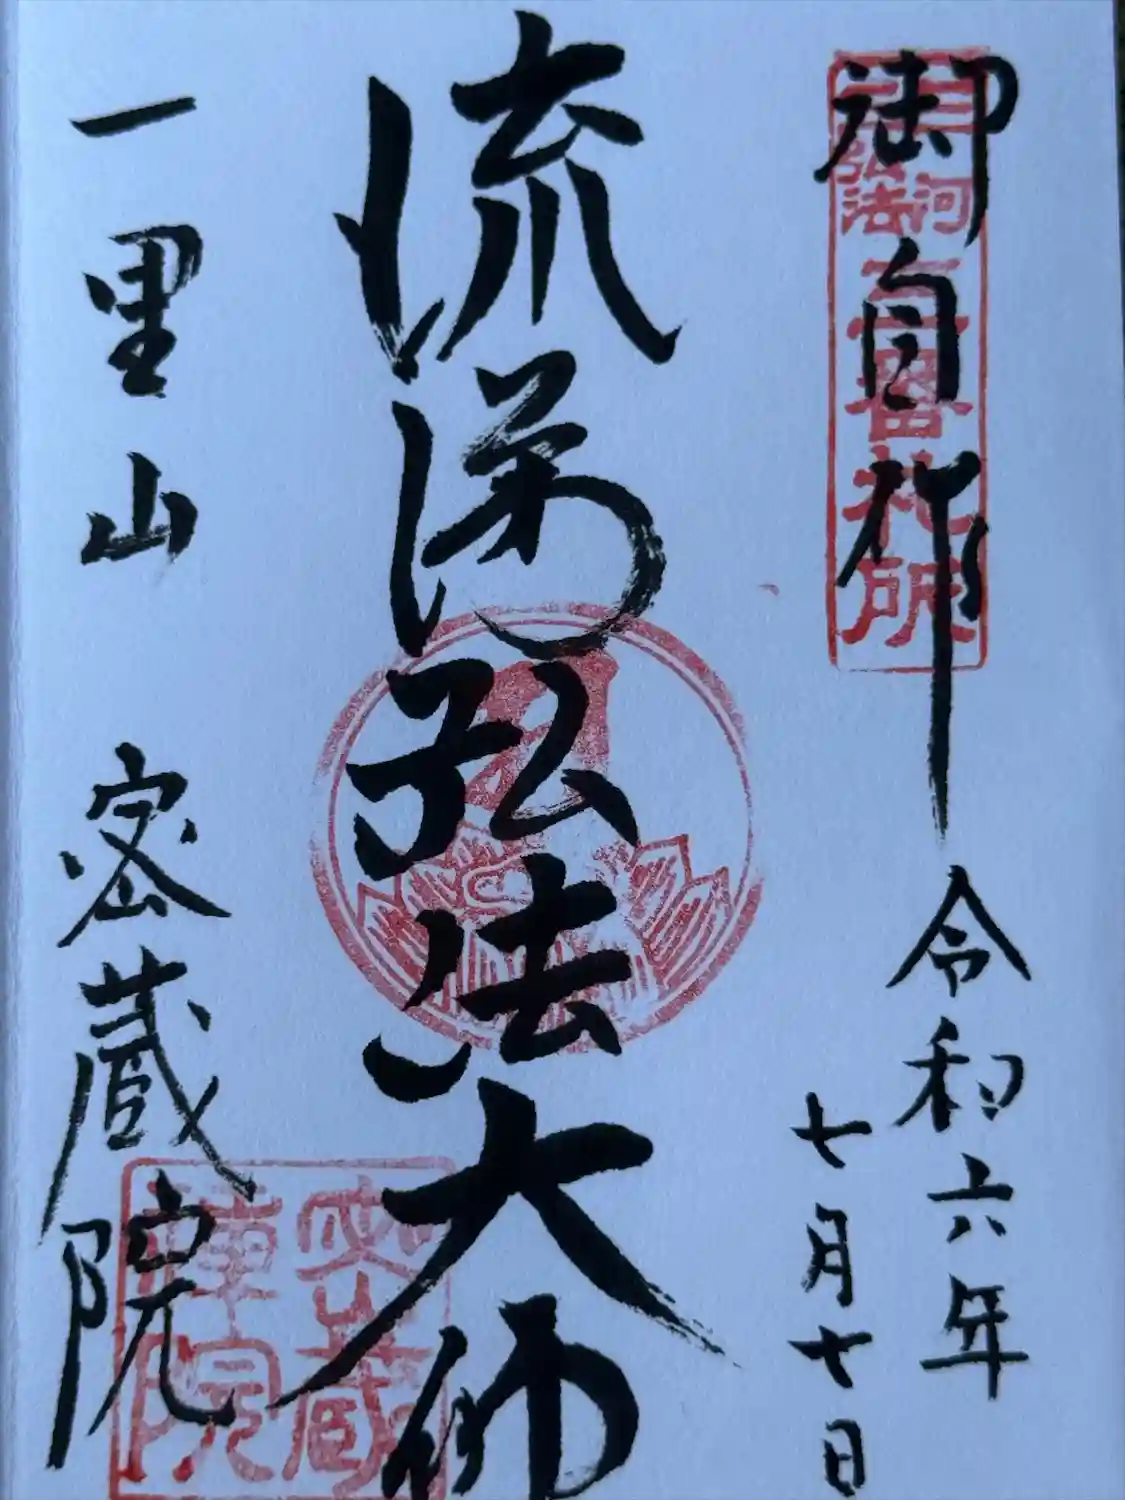 三河三弘法三番札所
御自作
令和六年
七月七日
流涕弘法大師
一里山 密蔵院
密蔵禅院